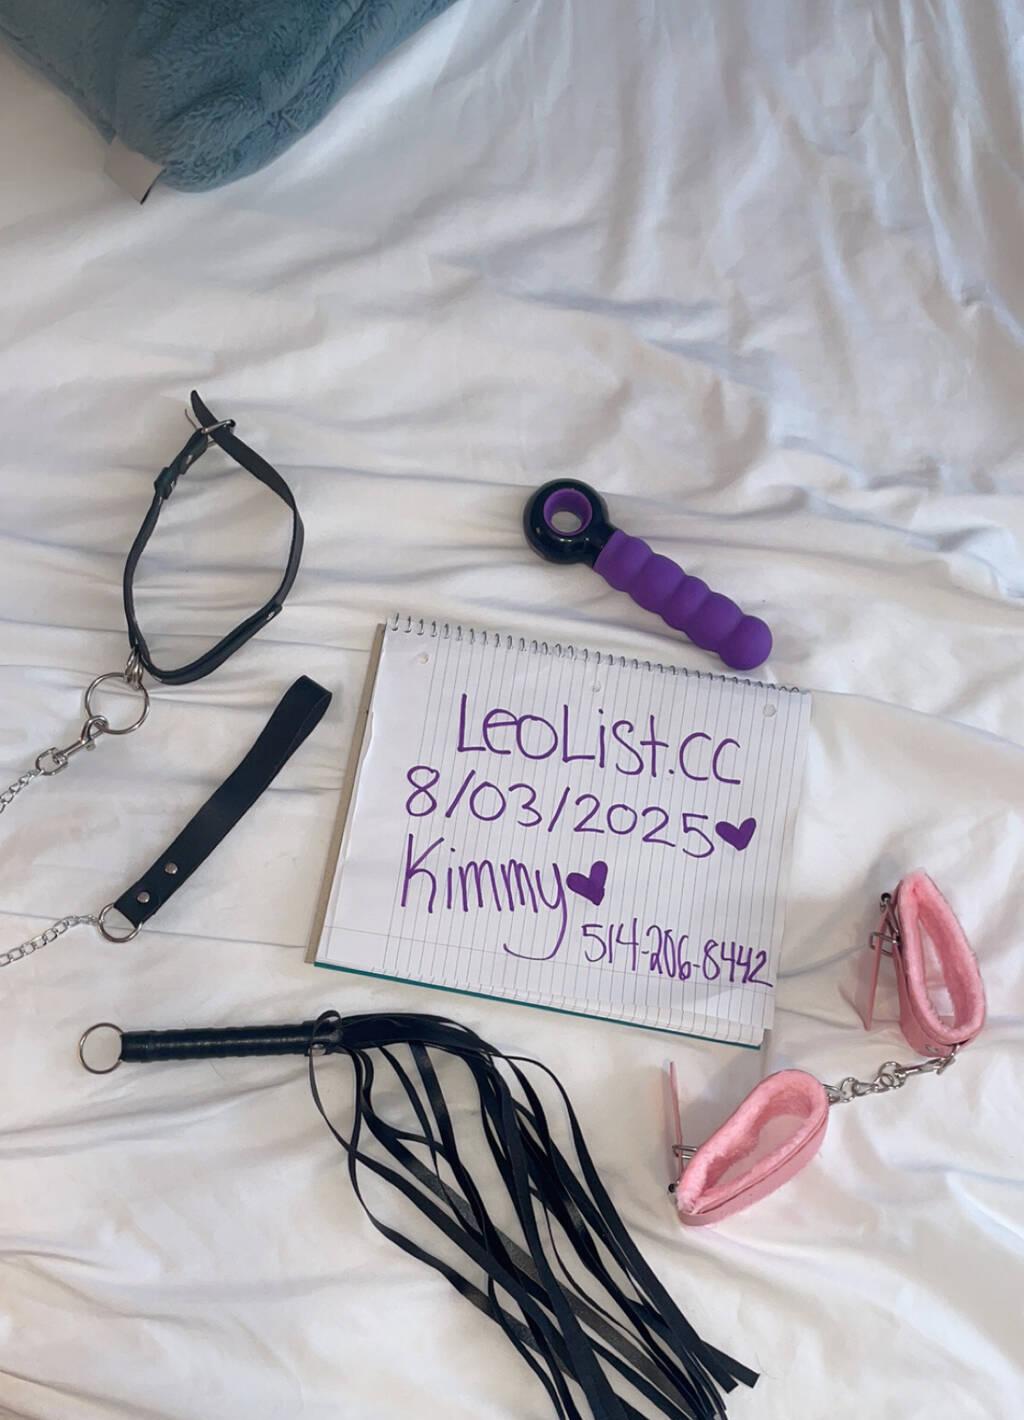 LeoList.cc
8/03/2025♥
Kimmy♥
514-206-8442